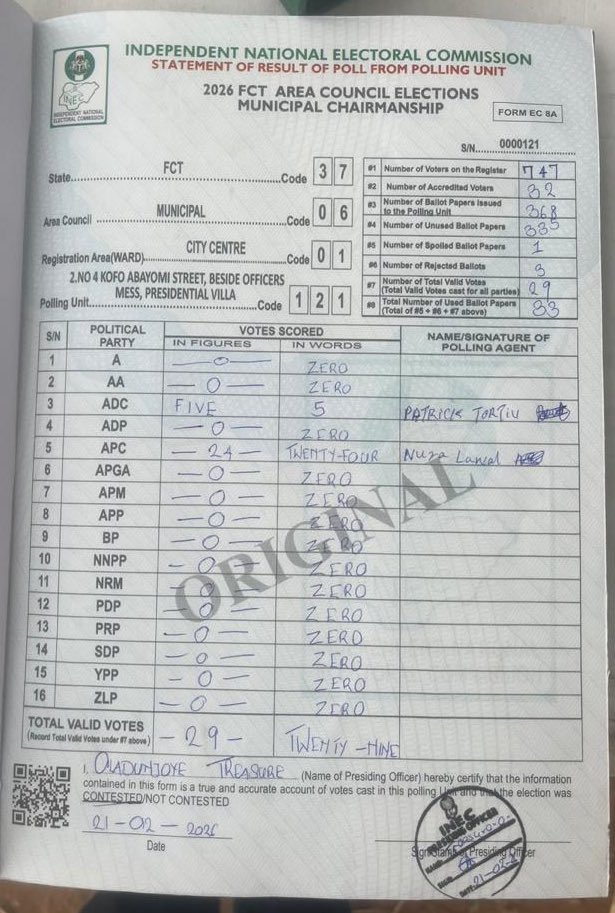 INDEPENDENT NATIONAL ELECTORAL COMMISSION
STATEMENT OF RESULT OF POLL FROM POLLING UNIT
2026 FCT AREA COUNCIL ELECTIONS
MUNICIPAL CHAIRMANSHIP
FORM EC 8A
INEC
INDEPENDENT NATIONAL
ELECTORAL COMMISSION
S/N. 0000121
State FCT Code 3 7
Area Council MUNICIPAL Code 0 6
Registration Area(WARD) CITY CENTRE Code 0 1
2.NO 4 KOFO ABAYOMI STREET, BESIDE OFFICERS
MESS, PRESIDENTIAL VILLA
Polling Unit Code 1 2 1
#1 Number of Voters on the Register 747
#2 Number of Accredited Voters 32
#3 Number of Ballot Papers Issued to the Polling Unit 368
#4 Number of Unused Ballot Papers 335
#5 Number of Spoiled Ballot Papers 1
#6 Number of Rejected Ballots 3
#7 Number of Total Valid Votes (Total Valid Votes cast for all parties) 29
#8 Total Number of Used Ballot Papers (Total of #5 + #6 + #7 above) 33
S/N POLITICAL PARTY VOTES SCORED NAME/SIGNATURE OF POLLING AGENT
IN FIGURES IN WORDS
1 A - 0 - ZERO
2 AA - 0 - ZERO
3 ADC FIVE 5 PATRICK TORTIV
4 ADP - 0 - ZERO
5 APC - 24 - TWENTY-FOUR
6 APGA - 0 - ZERO
7 APM - 0 - ZERO
8 APP - 0 - ZERO
9 BP - 0 - ZERO
10 NNPP - 0 - ZERO
11 NRM - 0 - ZERO
12 PDP - 0 - ZERO
13 PRP - 0 - ZERO
14 SDP - 0 - ZERO
15 YPP - 0 - ZERO
16 ZLP - 0 - ZERO
ORIGINAL
TOTAL VALID VOTES - 29 - TWENTY-NINE
(Record Total Valid Votes under #7 above)
I, OLADUNJOYE TREASURE (Name of Presiding Officer) hereby certify that the information
contained in this form is a true and accurate account of votes cast in this polling Unit and that the election was
CONTESTED/NOT CONTESTED
21-02-2026
Date
Sign/Stamp of Presiding Officer
INEC
PRESIDING OFFICER